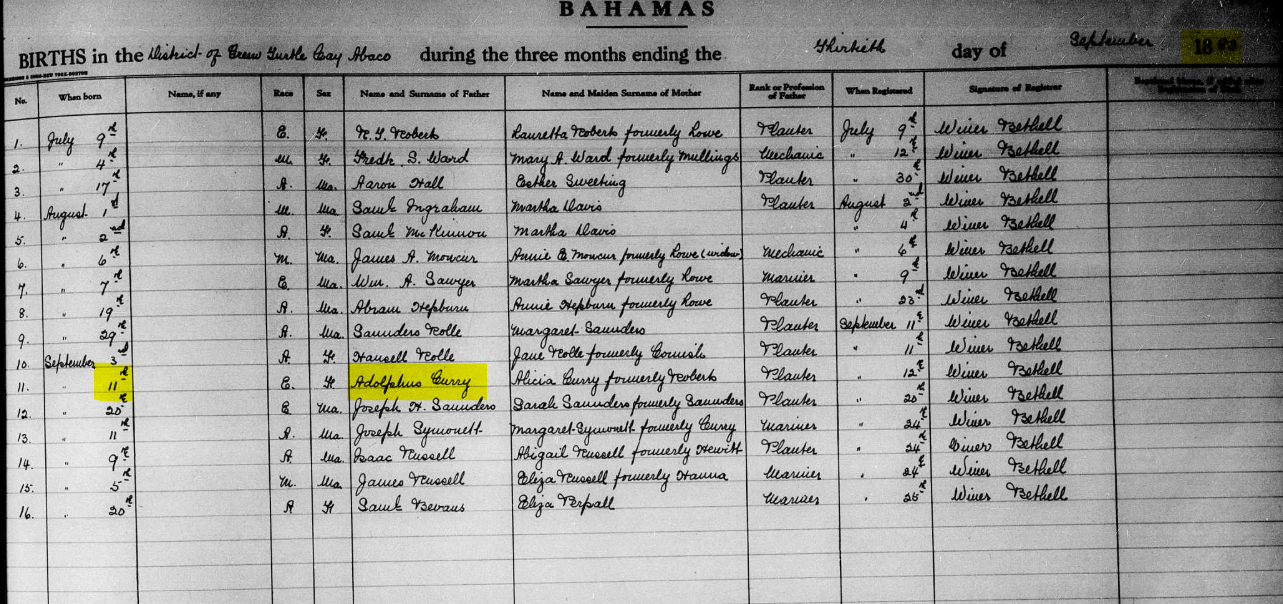 BAHAMAS
BIRTHS in the District of Green Turtle Cay Abaco during the three months ending the Thirtieth day of September 18
No. When born Name, if any Race Sex Name and Surname of Father Name and Maiden Surname of Mother Rank or Profession of Father When Registered Signature of Registrar
1. July 9th E. F. N. T. Roberts Lauretta Roberts formerly Lowe Planter July 9th Winer Bethell
2. " 4th M. F. Fredk S. Ward Mary A. Ward formerly Mullings Mechanic " 12th Winer Bethell
3. " 17th A. Ma. Aaron Hall Esther Sweeting Planter " 30th Winer Bethell
4. August 1st M. Ma Saml Ingraham Martha Davis Planter August 2nd Winer Bethell
5. " 2nd A F. Saml McKinnon Martha Davis " 4th Winer Bethell
6. " 6th M. Ma. James A. Moncur Annie E Moncur formerly Lowe (widow) Mechanic " 6th Winer Bethell
7. " 7th E Ma. Wm. A. Sawyer Martha Sawyer formerly Lowe Mariner " 9th Winer Bethell
8. " 19th A. Ma. Abram Hepburn Annie Hepburn formerly Lowe Planter " 23rd Winer Bethell
9. " 29th A. Ma. Saunders Rolle Margaret Saunders Planter September 11th Winer Bethell
10. September 3rd A F. Hansell Rolle Jane Rolle formerly Cornish Planter " 11th Winer Bethell
11. " 11th E. F. Adolphus Curry Alicia Curry formerly Roberts Planter " 12th Winer Bethell
12. " 20th E Ma. Joseph H. Saunders Sarah Saunders formerly Saunders Planter " 20th Winer Bethell
13. " 11th A. Ma. Joseph Symonett Margaret Symonett formerly Curry Mariner " 24th Winer Bethell
14. " 9th A Ma. Isaac Russell Abigail Russell formerly Hewitt Planter " 24th Winer Bethell
15. " 5th M. Ma James Russell Eliza Russell formerly Hanna Mariner " 24th Winer Bethell
16. " 20th A F Saml Bevans Eliza Perpall Mariner " 25th Winer Bethell